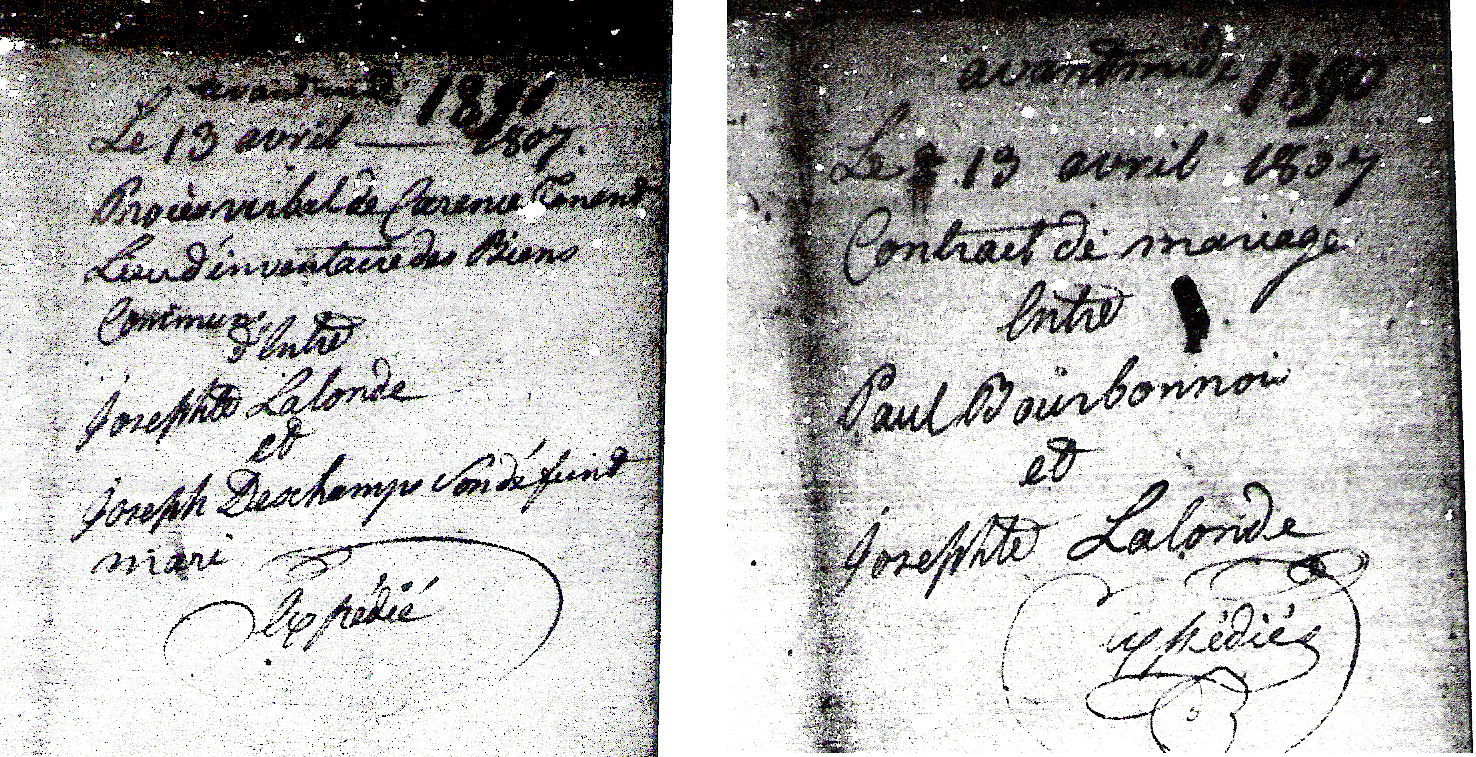 avant midi 1890
Le 13 avril — 1807.
Procès verbal de Carence Tenant
Lieu d'inventaire des Biens
Commun
d'Entre
Josephte Lalonde
et
Joseph Deschamps Son défunt
mari
Expédié
avant midi 1890
Le 13 avril 1807
Contract de mariage
Entre
Paul Bourbonnois
et
Josephte Lalonde
expédié